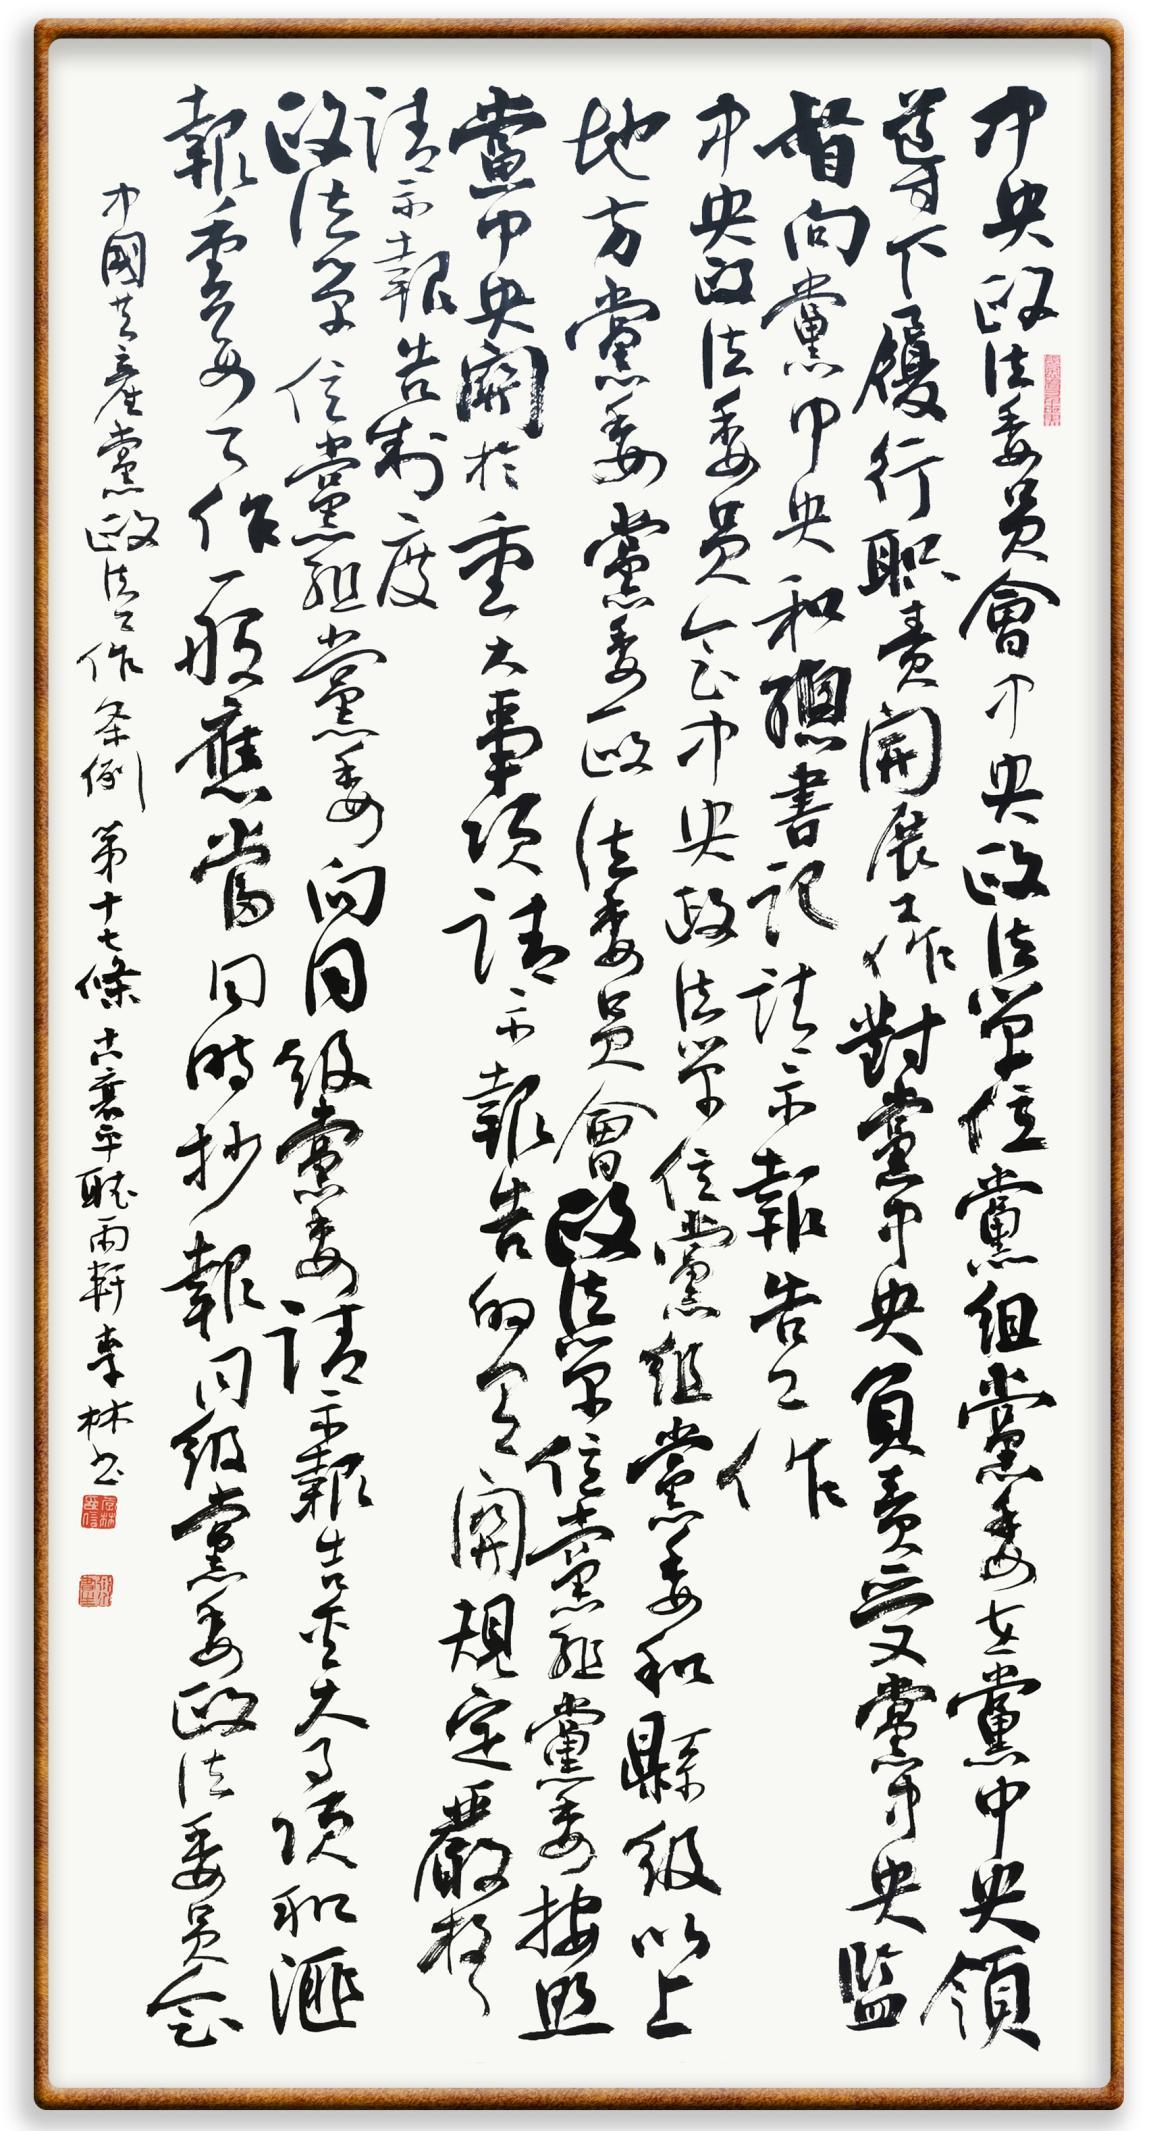 中央政法委員會中央政法单位黨組黨委在黨中央領
導下履行职责開展工作對黨中央負責受黨中央監
督向黨中央和總書記請示報告工作
中央政法委員会中央政法单位黨組黨委和縣級以上
地方黨委黨委政法委員會政法单位黨組黨委按照
黨中央關於重大事項請示報告的有關規定嚴格
請示報告制度
政法单位黨組黨委向同级黨委請示報告重大事項和匯
報重要工作一般應當同時抄報同级黨委政法委員会
中國共產黨政法工作条例第十七條古襄平聽雨軒李林书